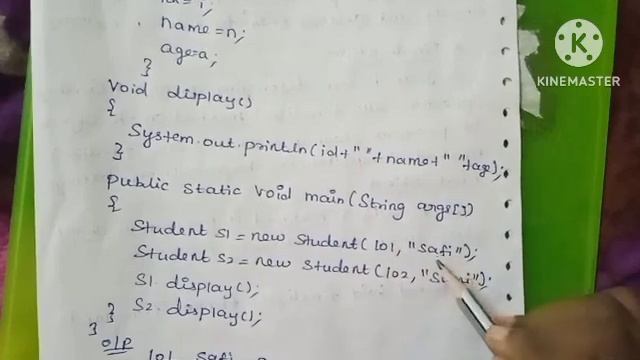 id = i;
name = n;
age=a;
}
void display()
{
System.out.println(id+" "+name+" "+age);
}
public static void main(String args[])
{
Student S1 = new Student(101, "Safi");
Student S2 = new Student(102, "
S1.display();
S2.display();
}
}
O/P
101 Safi
KINEMASTER